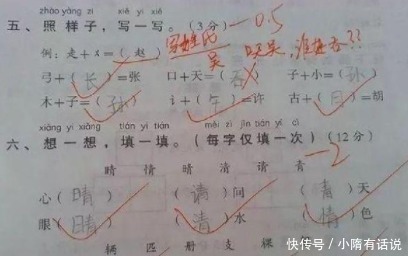 zhào yàng zǐ xiě yì xiě
五、照样子,写一写。(3分) —0.5
例:走+㐅=(赵) 写姓氏
吴 口天吴,谁姓吞??
弓+(长)=张 口+天=(吞) 子+小=(孙)
木+子=( ) 讠+(午)=许 古+(月)=胡
xiǎng yì xiǎng tián yì tián měi zì jǐn tián yí cì
六、想一想,填一填。(每字仅填一次)(12分)
—2
晴 情 睛 清 请 青
心(晴) (请)间 (青)天
眼(睛) (清)水 (情)色
辆 匹 册 支 棵
快传号 / 小隋有话说